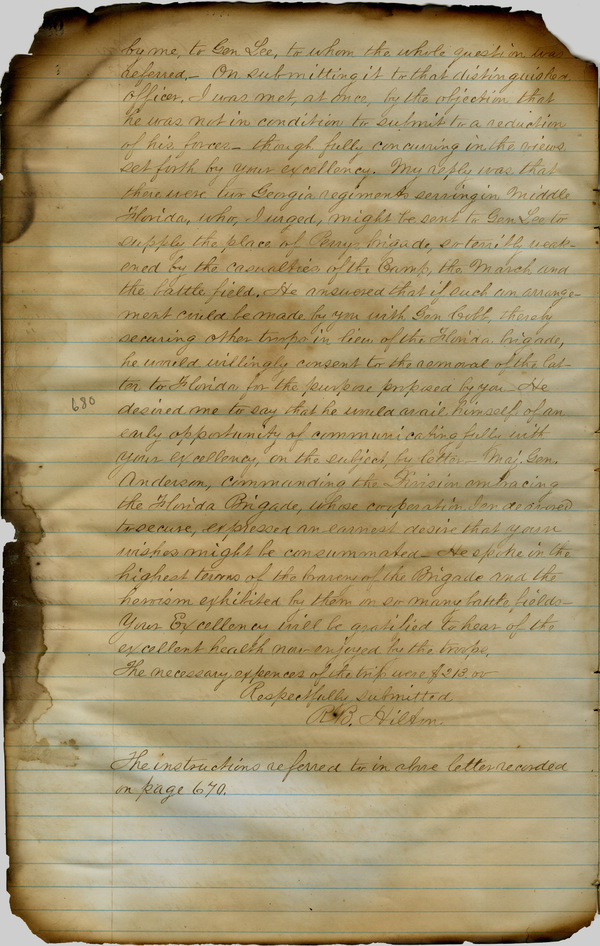 by me, to Gen Lee, to whom the whole question was
referred,— On submitting it to that distinguished
officer, I was met, at once, by the objection that
he was not in condition to submit to a reduction
of his forces— though fully concurring in the views
set forth by your excellency. My reply was that
there were two Georgia regiments serving in Middle
Florida, who, I urged, might be sent to Gen Lee to
supply the place of Perrys brigade, so terribly weak-
ened by the casualties of the Camp, the March and
the battle field. He answered that if such an arrange-
ment could be made by you with Gen Cobb, thereby
securing other troops in lieu of the Florida brigade,
he would willingly consent to the removal of the lat-
ter to Florida for the purpose proposed by you He
680
desired me to say that he would avail himself of an
early opportunity of communicating fully with
your excellency, on the subject, by letter— Maj. Gen.
Anderson, commanding the Division embracing
the Florida Brigade, whose cooperation I
to secure, expressed an earnest desire that your
wishes might be consummated— He spoke in the
highest terms of the bravery of the Brigade and the
heroism exhibited by them on so many battle fields—
Your Excellency will be gratified to hear of the
excellent health now enjoyed by the troops.
The necessary expences of the trip were $213.00
Respectfully submitted
R.B. Hilton.
The instructions referred to in above letter recorded
on page 670.